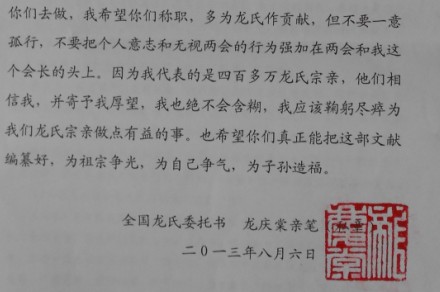 你们去做，我希望你们称职，多为龙氏作贡献，但不要一意
孤行，不要把个人意志和无视两会的行为强加在两会和我这
个会长的头上。因为我代表的是四百多万龙氏宗亲，他们相
信我，并寄予我厚望，我也绝不会含糊，我应该鞠躬尽瘁为
我们龙氏宗亲做点有益的事。也希望你们真正能把这部文献
编纂好，为祖宗争光，为自己争气，为子孙造福。
全国龙氏委托书 龙庆棠亲笔
二〇一三年八月六日